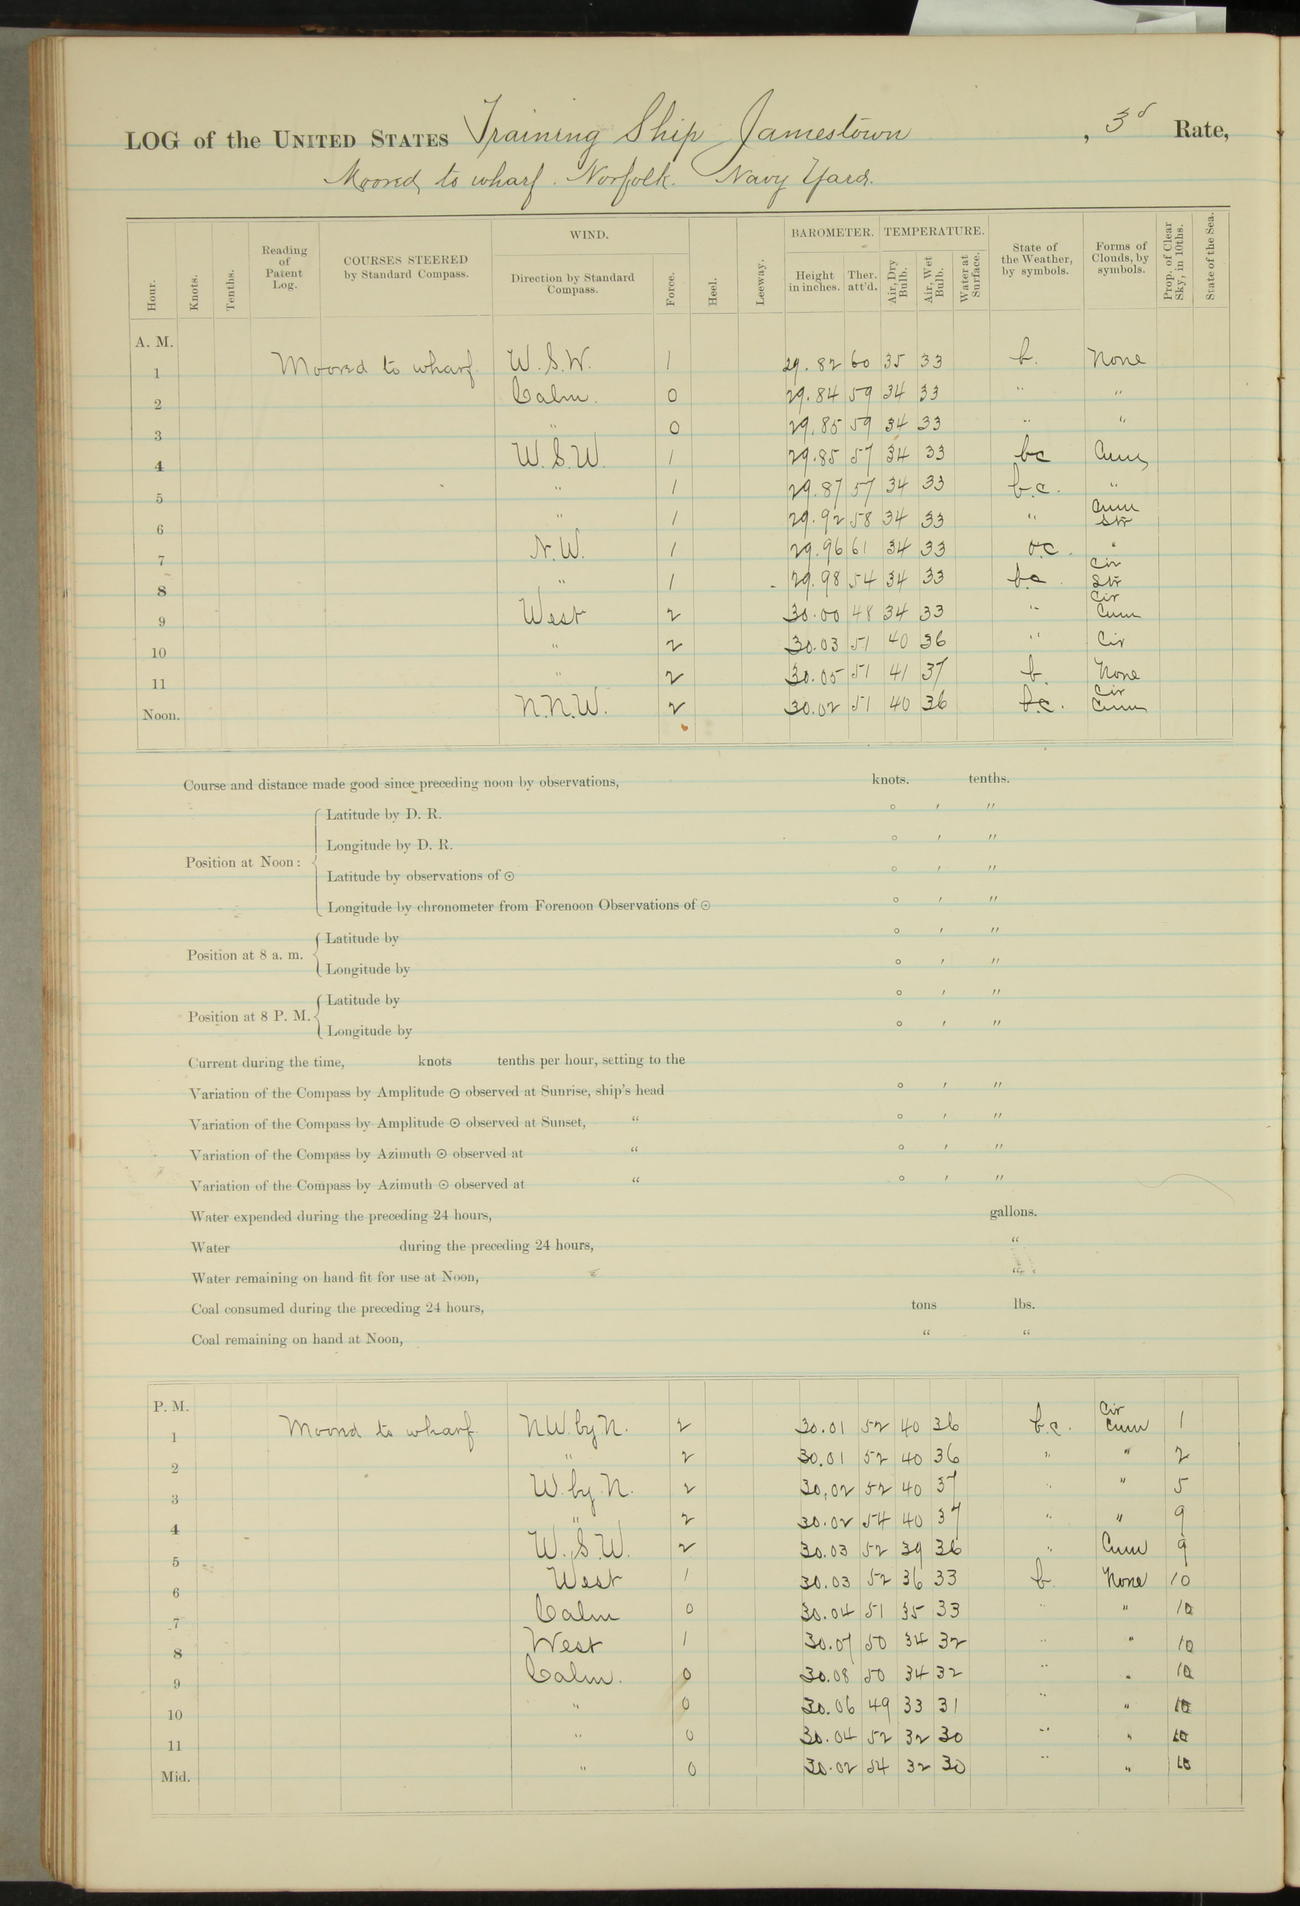 LOG of the UNITED STATES Training Ship Jamestown , 3d Rate,
Moored to wharf. Norfolk. Navy Yard.
Hour. Knots. Tenths. Reading of Patent Log. COURSES STEERED by Standard Compass. WIND. Direction by Standard Compass. Force. Heel. Leeway. BAROMETER. Height in inches. Ther. att'd. TEMPERATURE. Air, Dry Bulb. Air, Wet Bulb. Water at Surface. State of the Weather, by symbols. Forms of Clouds, by symbols. Prop. of Clear Sky, in 10ths. State of the Sea.
A. M.
1 Moored to wharf. W.S.W. 1 29.82 60 35 33 b. None
2 Calm. 0 29.84 59 34 33 " "
3 " 0 29.85 59 34 33 " "
4 W.S.W. 1 29.85 57 34 33 bc Cum
5 " 1 29.87 57 34 33 b.c. "
6 " 1 29.92 58 34 33 " Cum Str
7 N.W. 1 29.96 61 34 33 o.c. "
8 " 1 29.98 54 34 33 bc Cir Str
9 West 2 30.00 48 34 33 " Cir Cum
10 " 2 30.03 51 40 36 " Cir
11 " 2 30.05 51 41 37 b. None
Noon. N.N.W. 2 30.02 51 40 36 b.c. Cir Cum
Course and distance made good since preceding noon by observations, knots. tenths.
Position at Noon: Latitude by D. R. ° ′ ″
Longitude by D. R. ° ′ ″
Latitude by observations of ⊙ ° ′ ″
Longitude by chronometer from Forenoon Observations of ⊙ ° ′ ″
Position at 8 a. m. Latitude by ° ′ ″
Longitude by ° ′ ″
Position at 8 P. M. Latitude by ° ′ ″
Longitude by ° ′ ″
Current during the time, knots tenths per hour, setting to the
Variation of the Compass by Amplitude ⊙ observed at Sunrise, ship's head ° ′ ″
Variation of the Compass by Amplitude ⊙ observed at Sunset, " ° ′ ″
Variation of the Compass by Azimuth ⊙ observed at " ° ′ ″
Variation of the Compass by Azimuth ⊙ observed at " ° ′ ″
Water expended during the preceding 24 hours, gallons.
Water during the preceding 24 hours, "
Water remaining on hand fit for use at Noon, "
Coal consumed during the preceding 24 hours, tons lbs.
Coal remaining on hand at Noon, " "
P. M.
1 Moored to wharf. NW. by N. 2 30.01 52 40 36 b.c. Cir Cum 1
2 " 2 30.01 52 40 36 " " 2
3 W. by N. 2 30.02 52 40 37 " " 5
4 " 2 30.02 54 40 37 " " 9
5 W.S.W. 2 30.03 52 39 36 " Cum 9
6 West 1 30.03 52 36 33 b. None 10
7 Calm 0 30.04 51 35 33 " " 10
8 West 1 30.07 50 34 32 " " 10
9 Calm. 0 30.08 50 34 32 " " 10
10 " 0 30.06 49 33 31 " " 10
11 " 0 30.04 52 32 30 " " 10
Mid. " 0 30.02 54 32 30 " " 10